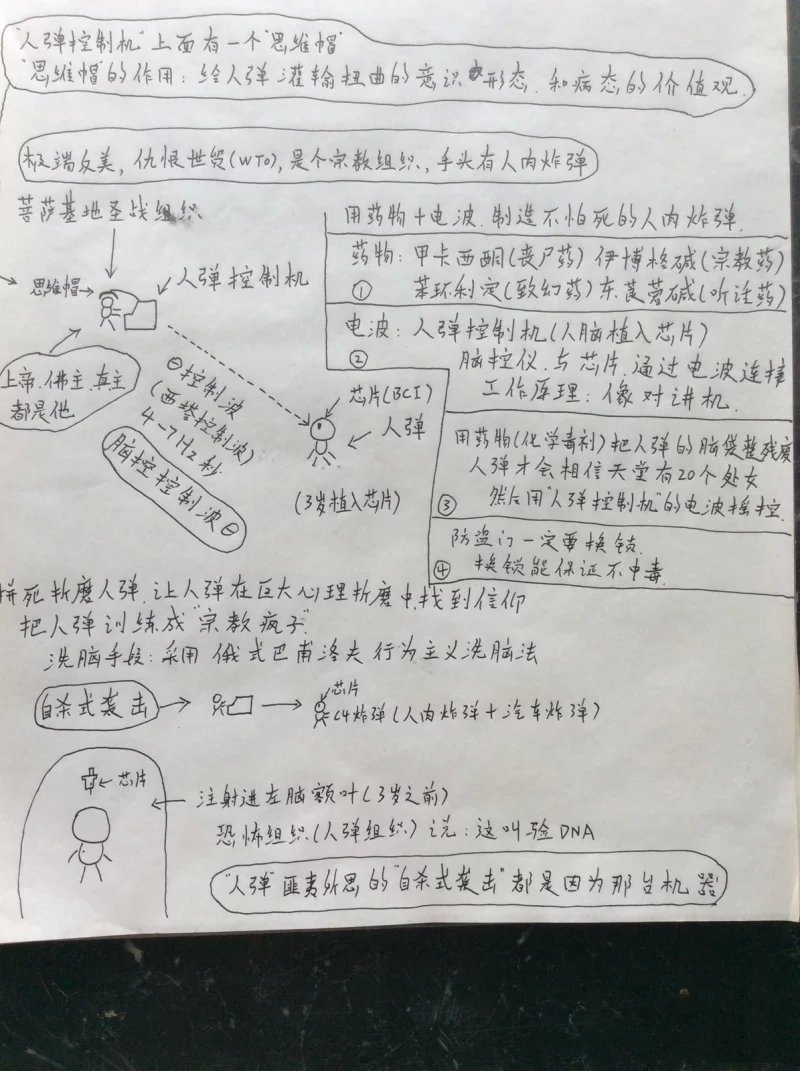 "人弹控制机"上面有一个"思维帽"
"思维帽"的作用：给人弹灌输扭曲的意识形态.和病态的价值观.
极端反美，仇恨世贸(WTO)，是个宗教组织，手头有人肉炸弹
菩萨基地圣战组织
思维帽→
人弹控制机
上帝.佛主.真主
都是他
⊖控制波
(西塔控制波)
4-7Hz秒
脑控控制波⊖
芯片(BCI)
人弹
(3岁植入芯片)
用药物+电波.制造不怕死的人肉炸弹.
药物：甲卡西酮(丧尸药) 伊博格碱(宗教药)
① 苯环利定(致幻药) 东莨菪碱(听话药)
电波：人弹控制机(人脑植入芯片)
② 脑控仪.与芯片.通过电波连接
工作原理：像对讲机.
用药物(化学毒剂)把人弹的脑袋整残废
人弹才会相信天堂有20个处女
③ 然后用"人弹控制机"的电波摇控.
防盗门一定要换锁.
④ 换锁能保证不中毒.
拼死折磨人弹.让人弹在巨大心理折磨中.找到信仰
把人弹训练成"宗教疯子"
洗脑手段：采用俄式巴甫洛夫行为主义洗脑法
自杀式袭击
芯片
C4炸弹(人肉炸弹+汽车炸弹)
芯片
注射进左脑额叶(3岁之前)
恐怖组织(人弹组织)说：这叫验DNA
"人弹"匪夷所思的"自杀式袭击"都是因为那台机器